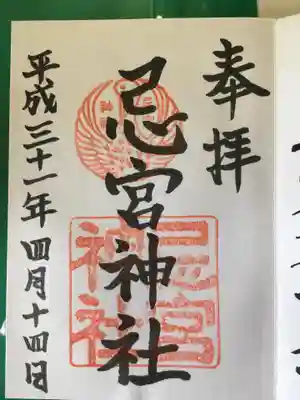 奉拝
忌宮神社
平成三十一年四月十四日
忌宮
神社